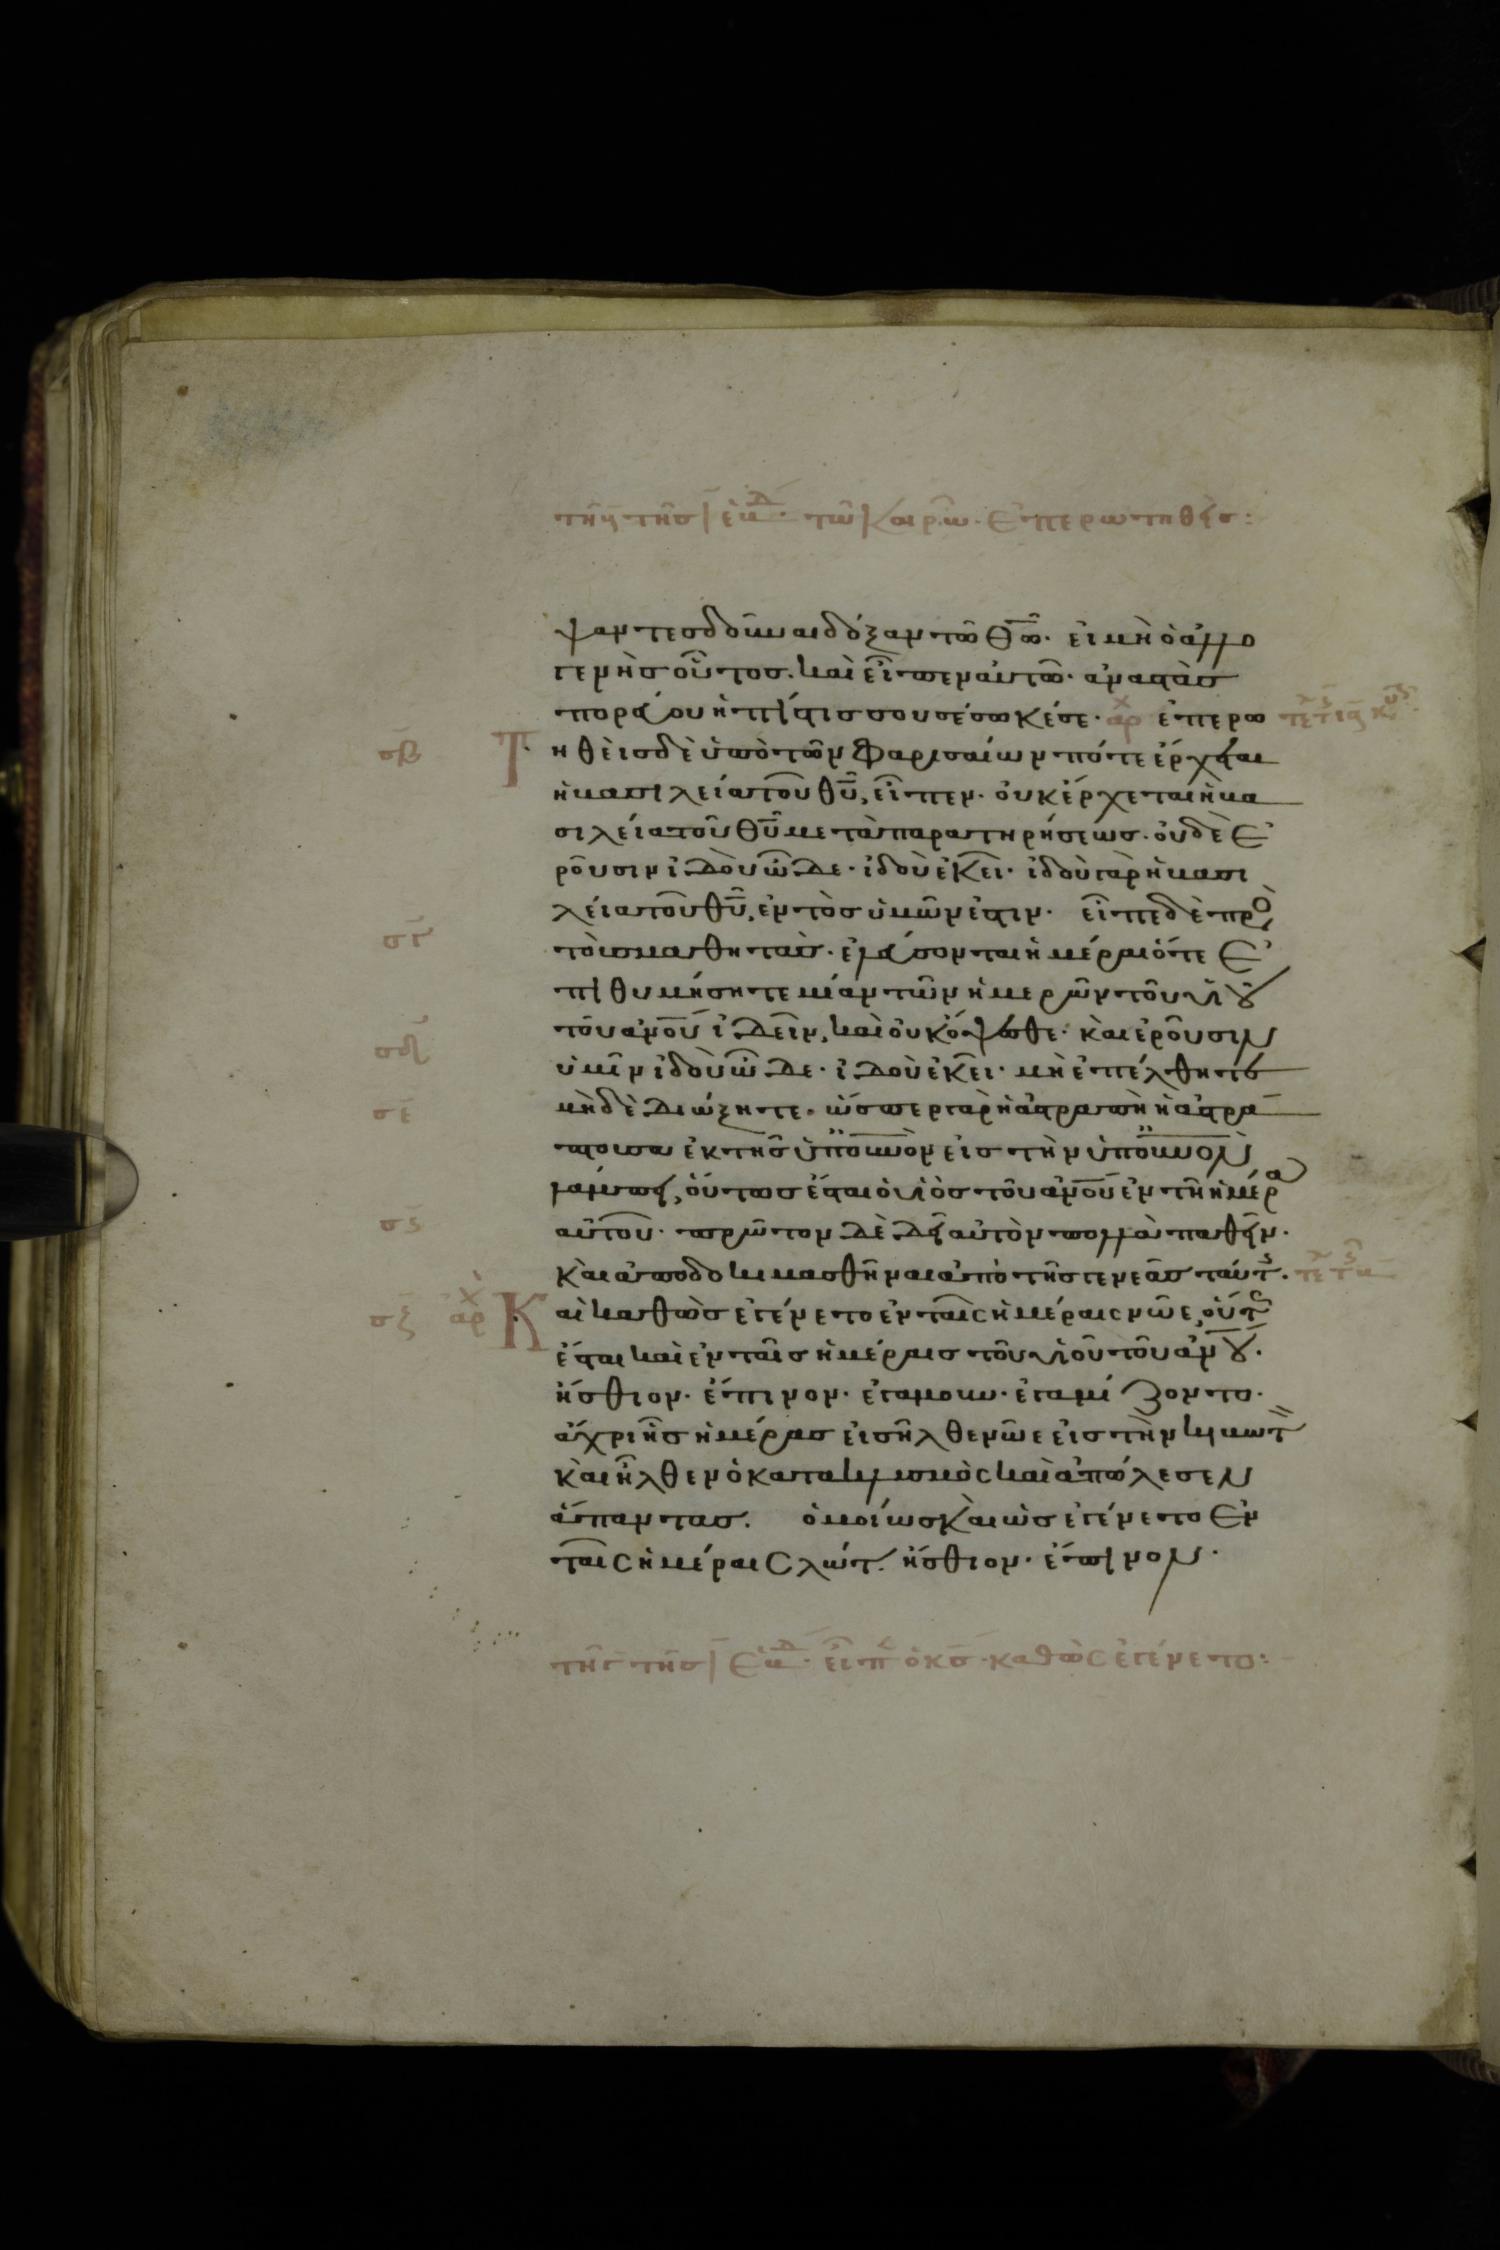 τῇ ϛ τῆς ι ἑβδ. τῷ καιρῷ. ἐπερωτηθεὶς:
ψαντες δοῦναι δόξαν τῷ θῶ. εἰ μὴ ὁ ἀλλο
γενὴς οὗτος. καὶ εἶπεν αὐτῷ. ἀναστὰς
πορεύου ἡ πίστις σου σέσωκέ σε. ἀρχ ἐπερω
σβ Τ
ηθεὶς δὲ ὑπὸ τῶν φαρισαίων πότε ἔρχεται
ἡ βασιλεία τοῦ θῦ, εἶπεν. οὐκ ἔρχεται ἡ βα
σιλεία τοῦ θῦ μετὰ παρατηρήσεως. οὐδὲ ἐ
ροῦσιν ἰδοὺ ὧδε. ἰδοὺ ἐκεῖ. ἰδοὺ γὰρ ἡ βασι
λεία τοῦ θῦ, ἐντὸς ὑμῶν ἐστιν. εἶπε δὲ πρὸ
σγ
τοὺς μαθητάς. ἐλεύσονται ἡμέραι ὅτε ἐ
πιθυμήσητε μίαν τῶν ἡμερῶν τοῦ υἱοῦ
τοῦ ἀνοῦ ἰδεῖν, καὶ οὐκ ὄψεσθε. καὶ ἐροῦσιν
σδ
ὑμῖν ἰδοὺ ὧδε. ἰδοὺ ἐκεῖ. μὴ ἐπέλθητε
σε
μηδὲ διώξητε. ὥσπερ γὰρ ἡ ἀστραπὴ ἡ ἀστρα
πτουσα ἐκ τῆς ὑπ οὐνὸν εἰς τὴν ὑπ οὐνὸν
λάμπει, οὕτως ἔσται ὁ υἱὸς τοῦ ἀνοῦ ἐν τῇ ἡμέρα
σϛ
αὐτοῦ. πρῶτον δὲ δεῖ αὐτὸν πολλὰ παθεῖν.
καὶ ἀποδοκιμασθῆναι ἀπὸ τῆς γενεᾶς ταύτ.
σζ ἀρχ Κ
αὶ καθὼς ἐγένετο ἐν ταῖς ἡμέραις νῶε, οὕτ
ἔσται καὶ ἐν ταῖς ἡμέραις τοῦ υἱοῦ τοῦ ἀνοῦ.
ἤσθιον. ἔπινον. ἐγάμουν. ἐγαμίζοντο.
ἄχρι ἧς ἡμέρας εἰσῆλθε νῶε εἰς τὴν κιβωτ
καὶ ἦλθεν ὁ κατακλυσμὸς καὶ ἀπώλεσεν
ἅπαντας. ὁμοίως καὶ ὡς ἐγένετο ἐν
ταῖς ἡμέραις λώτ. ἤσθιον. ἔπινον.
τῇ γ τῆς ι ἑβδ. εἶπ ὁ κς. καθὼς ἐγένετο: